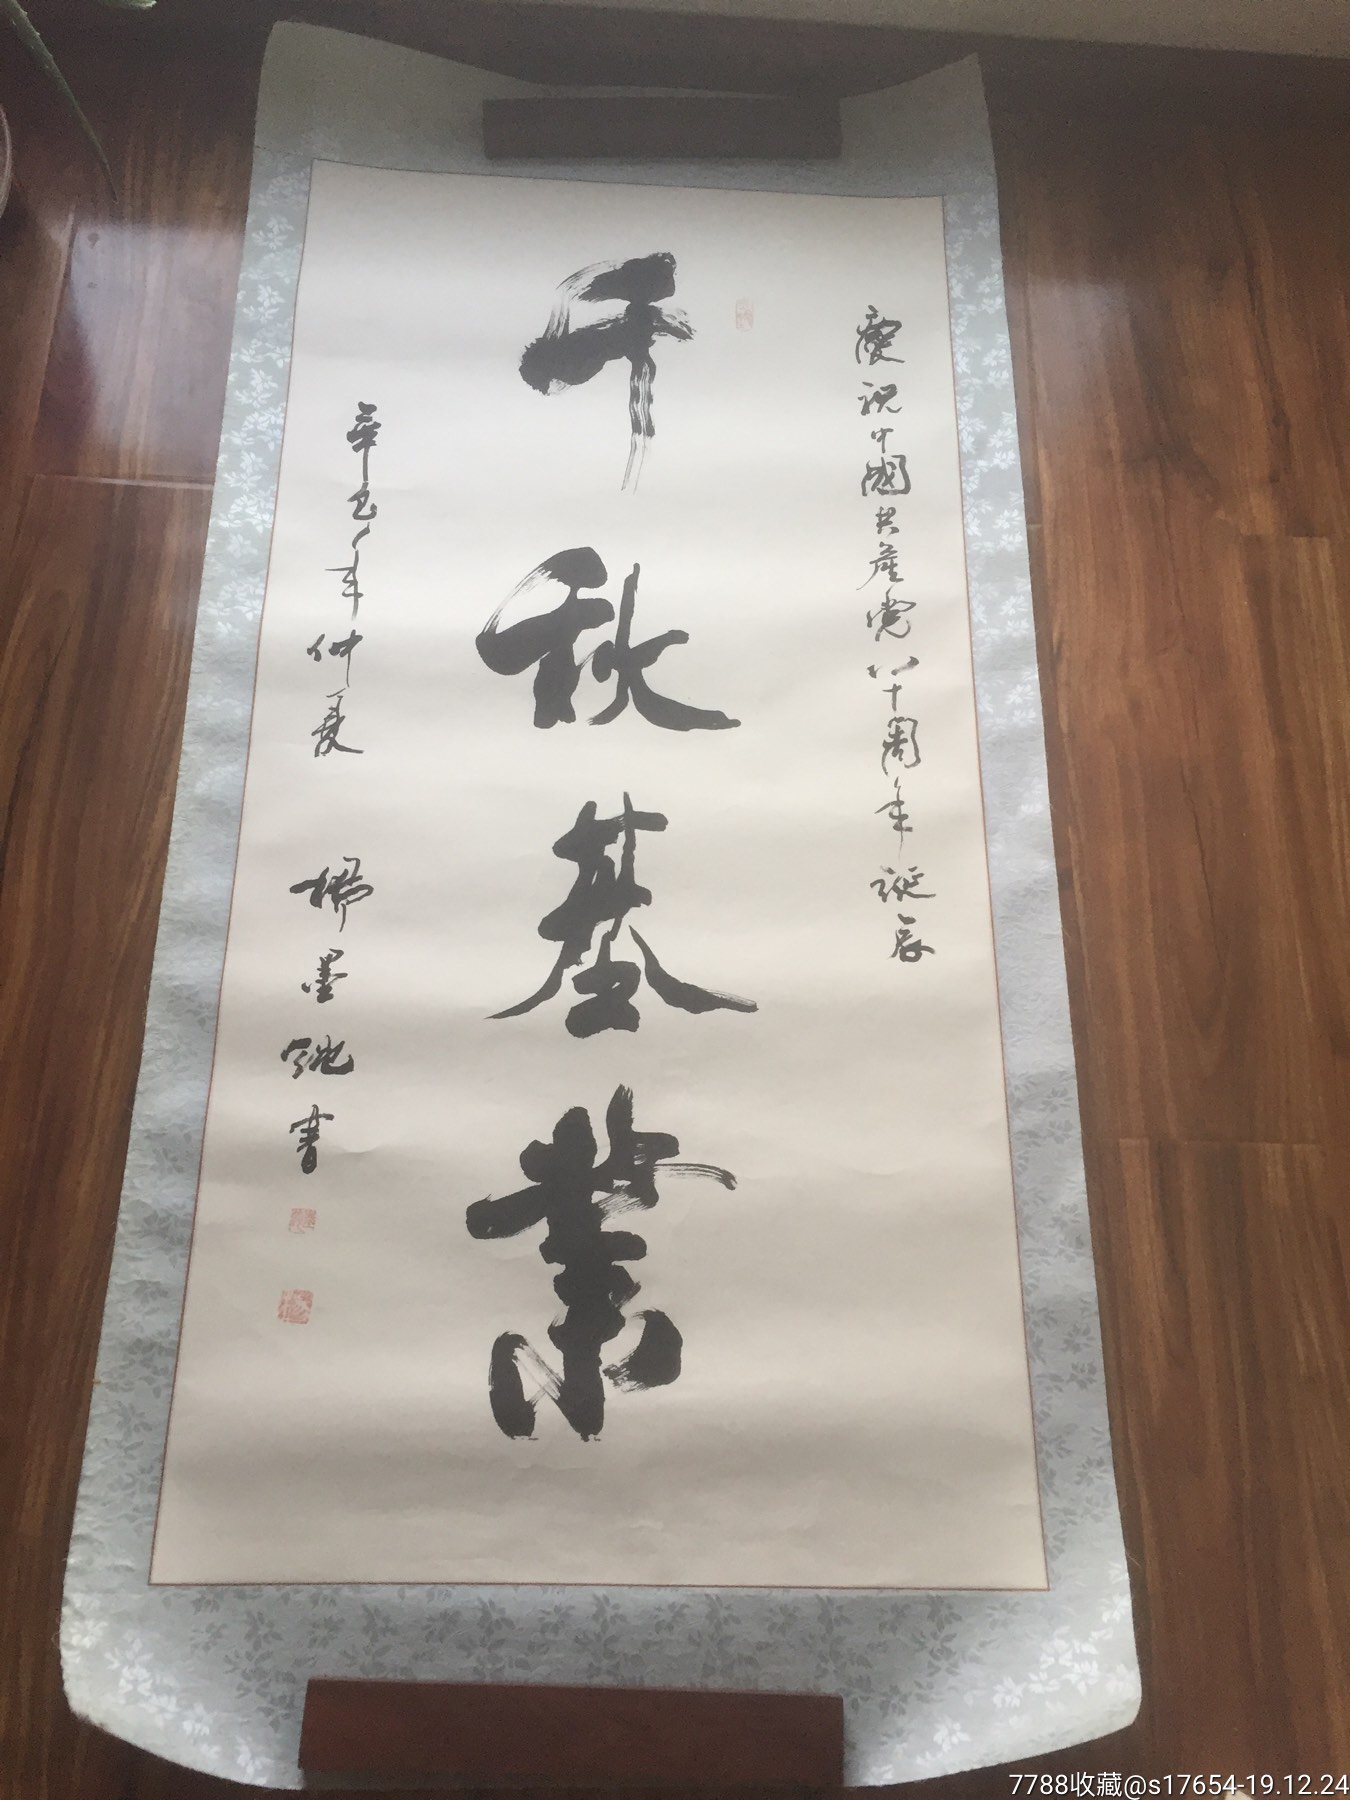 慶祝中國共產党八十周年誕辰
千秋基業
辛巳年仲夏
楊墨 書
7788收藏@s17654-19.12.24